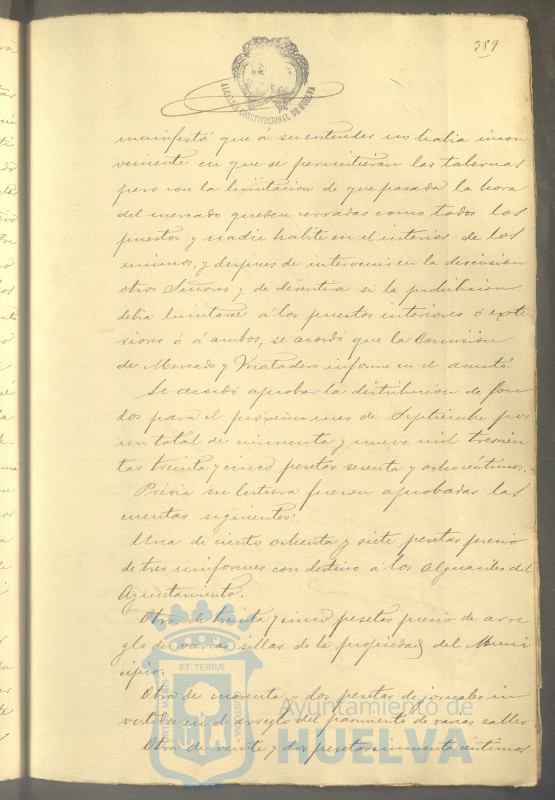 359
ALCALDIA CONSTITUCIONAL DE HUELVA
manifestó que á su entender no habia incon
veniente en que se permitieran las tabernas
pero con la limitacion de que pasada la hora
del mercado queden cerradas como todos los
puestos y nadie habite en el interior de los
mismos, y despues de intervenir en la discusion
otros Señores y de discutirse si la prohibicion
debia limitarse á los puestos interiores ó exte-
riores ó á ambos, se acordó que la Comision
de Mercado y Matadero informe en el asunto.
Se acordó aprobar la distribucion de fon
dos para el próximo mes de Septiembre por
un total de cincuenta y nueve mil trescien
tas treinta y cinco pesetas sesenta y ocho céntimos.
Prévia su lectura fueron aprobadas las
cuentas siguientes:
Una de ciento ochenta y siete pesetas precio
de tres uniformes con destino á los Alguaciles del
Ayuntamiento.
Otra de treinta y cinco pesetas precio de arre
glo de varias sillas de la propiedad del Muni
cipio.
Otra de cuarenta y dos pesetas de jornales in
vertidos en el arreglo del pavimento de varias calles
Otra de veinte y dos pesetas cincuenta céntimos
ET TERRÆ
PORTUS MARIS
CUSTODIA
Ayuntamiento de
HUELVA